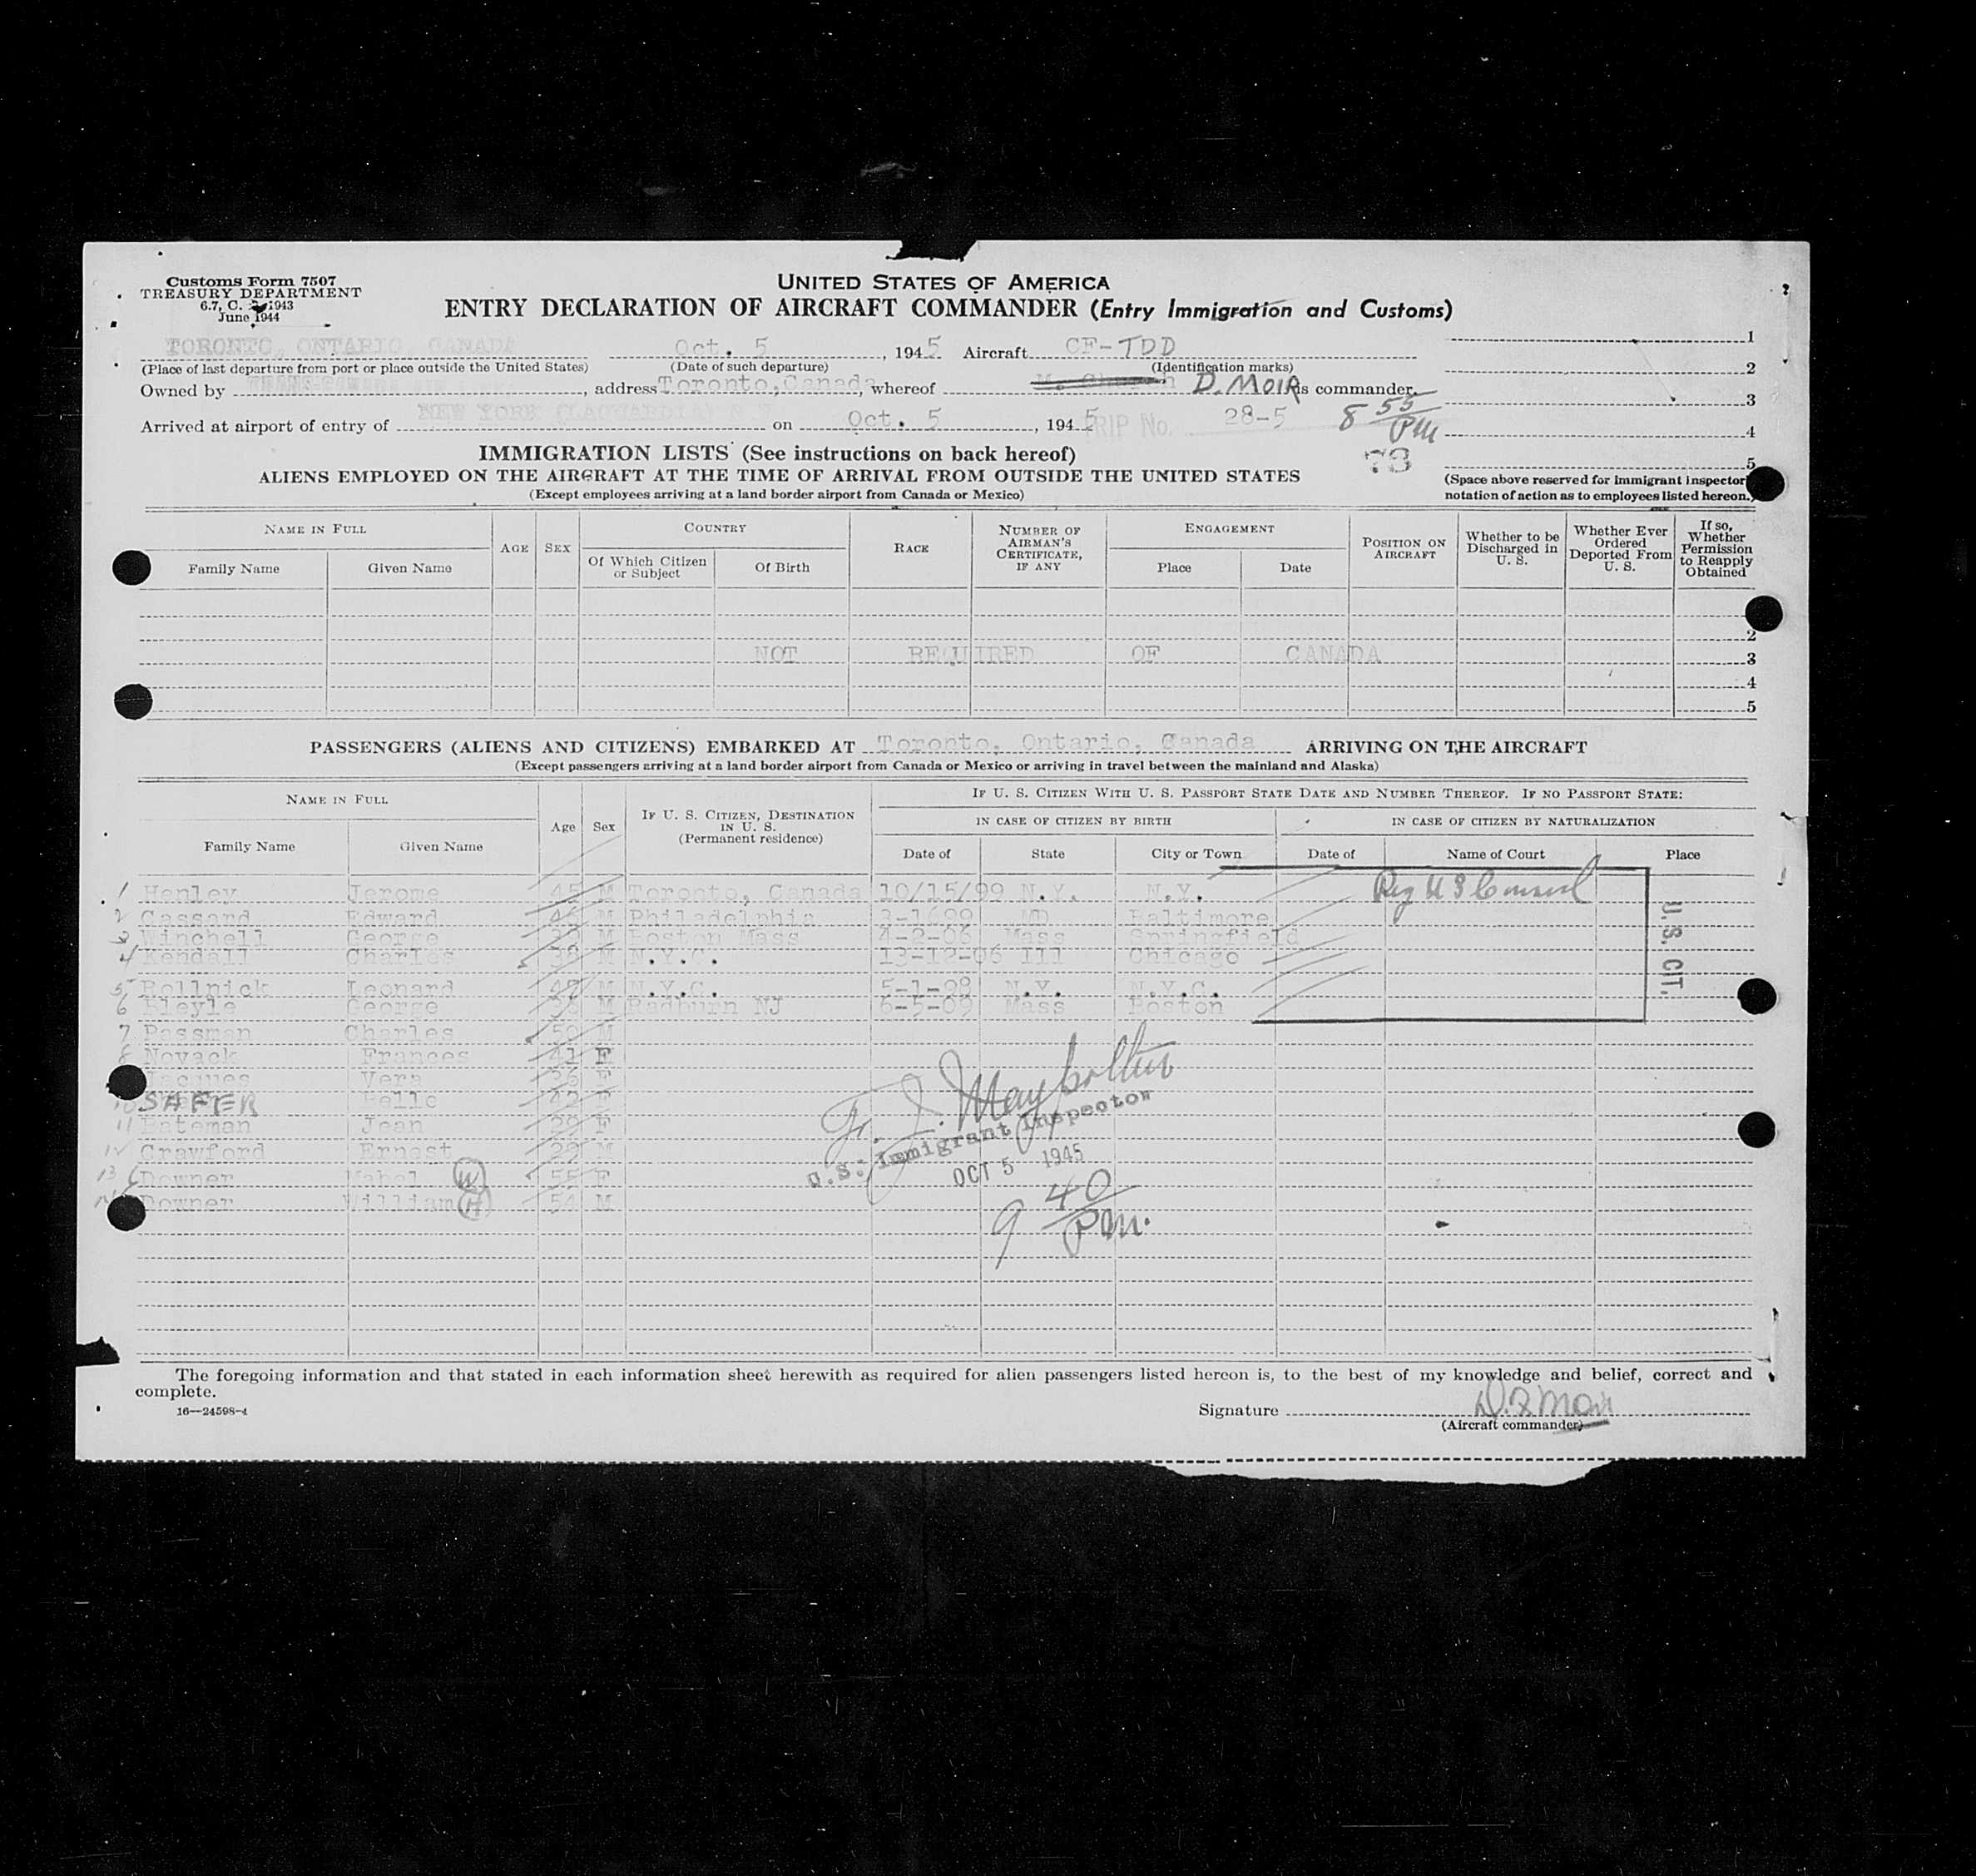 Customs Form 7507
TREASURY DEPARTMENT
6.7, C. 1943
June 1944
UNITED STATES OF AMERICA
ENTRY DECLARATION OF AIRCRAFT COMMANDER (Entry Immigration and Customs)
TORONTO, ONTARIO, CANADA Oct. 5, 1945 Aircraft CF-TDD 1
(Place of last departure from port or place outside the United States) (Date of such departure) (Identification marks) 2
Owned by , address Toronto, Canada, whereof D. MOIR is commander. 3
Arrived at airport of entry of NEW YORK on Oct. 5, 1945 TRIP No. 28-5 8 55 PM 4
IMMIGRATION LISTS (See instructions on back hereof) 5
ALIENS EMPLOYED ON THE AIRCRAFT AT THE TIME OF ARRIVAL FROM OUTSIDE THE UNITED STATES (Space above reserved for immigrant inspector
(Except employees arriving at a land border airport from Canada or Mexico) notation of action as to employees listed hereon.)
NAME IN FULL AGE SEX COUNTRY RACE NUMBER OF AIRMAN'S CERTIFICATE, IF ANY ENGAGEMENT POSITION ON AIRCRAFT Whether to be Discharged in U. S. Whether Ever Ordered Deported From U. S. If so, Whether Permission to Reapply Obtained
Family Name Given Name Of Which Citizen or Subject Of Birth Place Date
2
NOT REQUIRED OF CANADA 3
4
5
PASSENGERS (ALIENS AND CITIZENS) EMBARKED AT Toronto, Ontario, Canada ARRIVING ON THE AIRCRAFT
(Except passengers arriving at a land border airport from Canada or Mexico or arriving in travel between the mainland and Alaska)
NAME IN FULL Age Sex IF U. S. CITIZEN, DESTINATION IN U. S. (Permanent residence) IF U. S. CITIZEN WITH U. S. PASSPORT STATE DATE AND NUMBER THEREOF. IF NO PASSPORT STATE:
IN CASE OF CITIZEN BY BIRTH IN CASE OF CITIZEN BY NATURALIZATION
Family Name Given Name Date of State City or Town Date of Name of Court Place
1 Henley Jerome 45 M Toronto, Canada 10/15/99 N.Y. N.Y. Reg U S Consul
2 Cassard Edward 46 M Philadelphia MD Baltimore
3 Winchell George M Boston Mass 4-2-06 Mass Springfield
4 Kendall Charles 38 M N.Y.C. 13-12-06 Ill Chicago
5 Pollnick Leonard 47 M N.Y.C. 5-1-98 N.Y. N.Y.C.
6 Pleyle George M Radburn NJ 6-5-09 Mass Boston
7 Passman Charles 50 M
8 Novack Frances 41 F
Jacques Vera F
10 SHAFER Belle 42 F
11 Bateman Jean 29 F
12 Crawford Ernest 29 M
13 Downer Mabel (W) 55 F
14 Downer William (H) 54 M
U.S. CIT.
U.S. Immigrant Inspector
OCT 5 1945
9 40 P.M.
The foregoing information and that stated in each information sheet herewith as required for alien passengers listed hereon is, to the best of my knowledge and belief, correct and
complete.
16—24598-4
Signature D. Moir
(Aircraft commander)